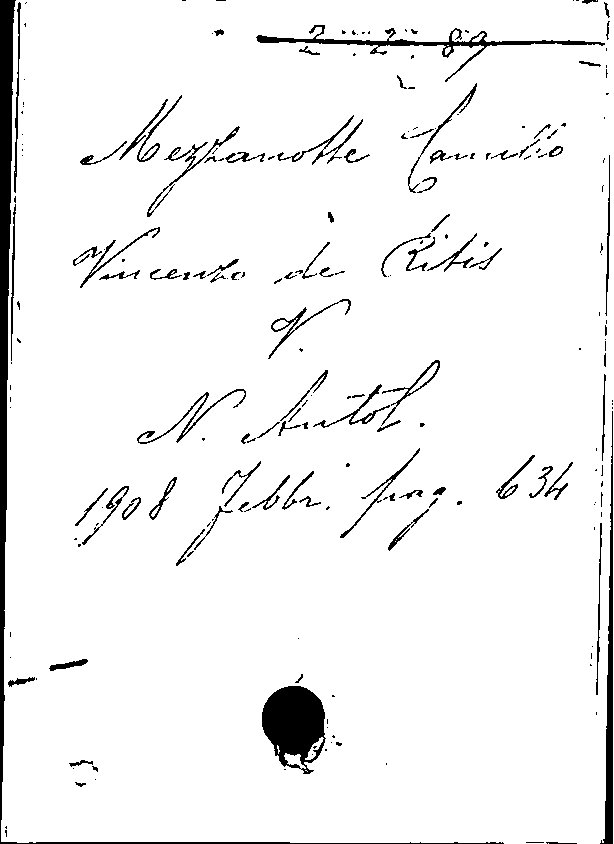 2 2. 89
Mezzanotte Camillo
Vincenzo de Ritis
V.
N. Antol.
1908 Febbr. pag. 634